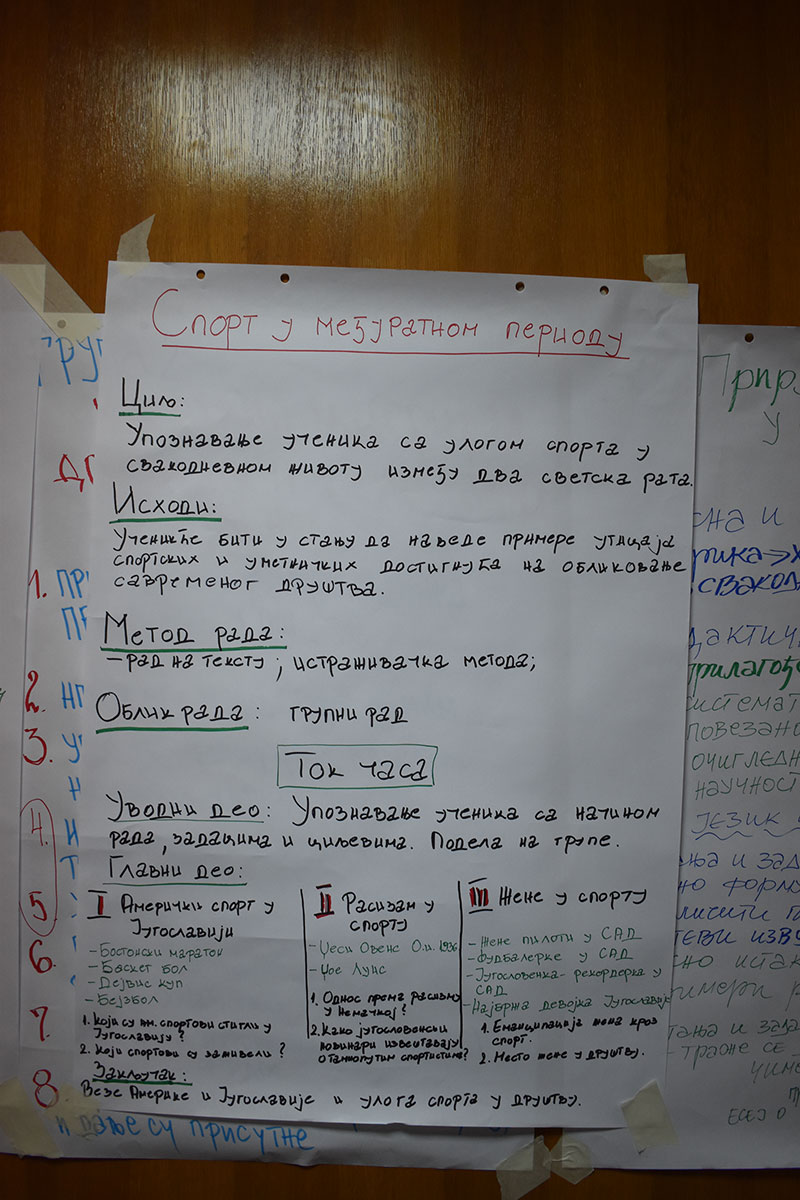 Спорт у међуратном периоду
Циљ:
Упознавање ученика са улогом спорта у
свакодневном животу између два светска рата.
Исходи:
Ученик ће бити у стању да наведе примере утицаја
спортских и уметничких достигнућа на обликовање
савременог друштва.
Метод рада:
– рад на тексту; истраживачка метода;
Облик рада: групни рад
Ток часа
Уводни део: Упознавање ученика са начином
рада, задацима и циљевима. Подела на групе.
Главни део:
I Амерички спорт у
Југославији
– Бостонски маратон
– Баскет бол
– Дејвис куп
– Бејзбол
1. Који су ам. спортови стигли у
Југославију?
2. Који спортови су заживели?
II Расизам у
спорту
– Џеси Овенс О.и. 1936
– Џое Луис
1. Однос према расизму
у Немачкој?
2. Како југословенски
новинари извештавају
о тамнопутим спортистима?
III Жене у спорту
– Жене пилоти у САД
– Фудбалерке у САД
– Југословенка- рекордерка у
САД
– Најбржа девојка Југославије
1. Еманципација жена кроз
спорт.
2. Место жене у друштву.
Закључак:
Везе Америке и Југославије и улога спорта у друштву.
ГРУП
1. ПР
2.
3.
4.
5.
6.
7.
8.
и даље су присутне
у
и
рика→
свакод
дактич
прилагођ
системат
повезано
очигледн
научност
језик
ња и зад
но форму
изву
но истак
римери
тања и зада
- трајне се
есеј о